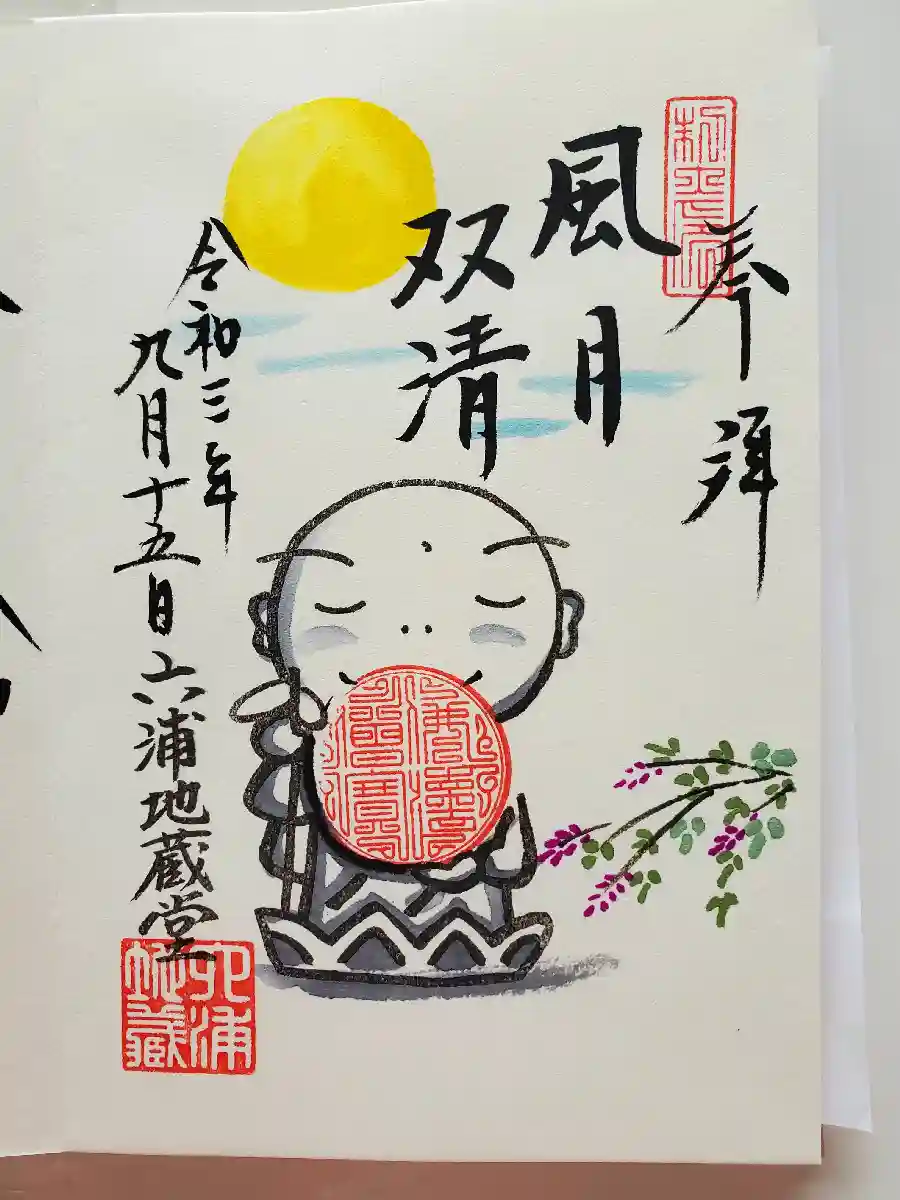 奉拝
風月
双清
令和三年
九月十五日
六浦地蔵堂
六浦
地蔵